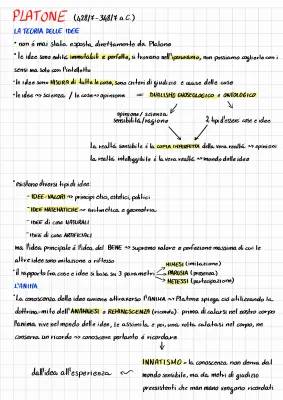 PLATONE (428/7-348/7 a.C.)
LA TEORIA DELLE IDEE
• non è mai stata esposta direttamente da Platone
• le idee sono entità immutabili e perfette, si trovano nell'iperuranio, non possiamo coglierle con i
sensi ma solo con l'intelletto
• le idee sono MISURA di tutte le cose, sono criteri di giudizio e cause delle cose
• le idee → scienza / le cose → opinione = DUALISMO GNOSEOLOGICO e ONTOLOGICO
opinione/scienza
sensibilità/ragione
2 tipi d'esseri: cose e idee
la realtà sensibile è la COPIA IMPERFETTA della vera realtà → opinioni
la realtà intelleggibile è la vera realtà → mondo delle idee
• esistono diversi tipi di idee:
- IDEE-VALORI → principi etici, estetici, politici
- IDEE MATEMATICHE → aritmetica e geometria
- IDEE di cose NATURALI
- IDEE di cose ARTIFICIALI
ma l'idea principale è l'idea del BENE → supremo valore e perfezione massima di cui le
altre idee sono imitazione o riflesso
• il rapporto fra cose e idee si basa su 3 parametri
MIMESI (imitazione)
PARUSIA (presenza)
METESSI (partecipazione)
L'ANIMA
• La conoscenza delle idee avviene attraverso l'ANIMA → Platone spiega ciò utilizzando la
dottrina-mito dell'ANAMNESI o REMINESCENZA (ricordo): prima di calarsi nel nostro corpo
l'anima vive nel mondo delle idee, le assimila e poi, una volta calatasi nel corpo, ne
conserva un ricordo → conoscere pertanto è ricordare
INNATISMO - la conoscenza non deriva dal
mondo sensibile, ma da metri di giudizio
preesistenti che man mano vengono ricordati
dall'idea all'esperienza